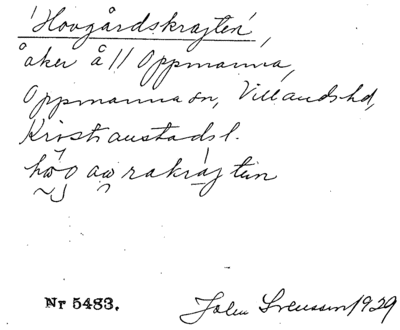 'Hovgårdskrajten',
åker å 11 Oppmanna,
Oppmanna sn, Villands hd,
Kristianstads l.
Nr 5483. John Svensson 1929